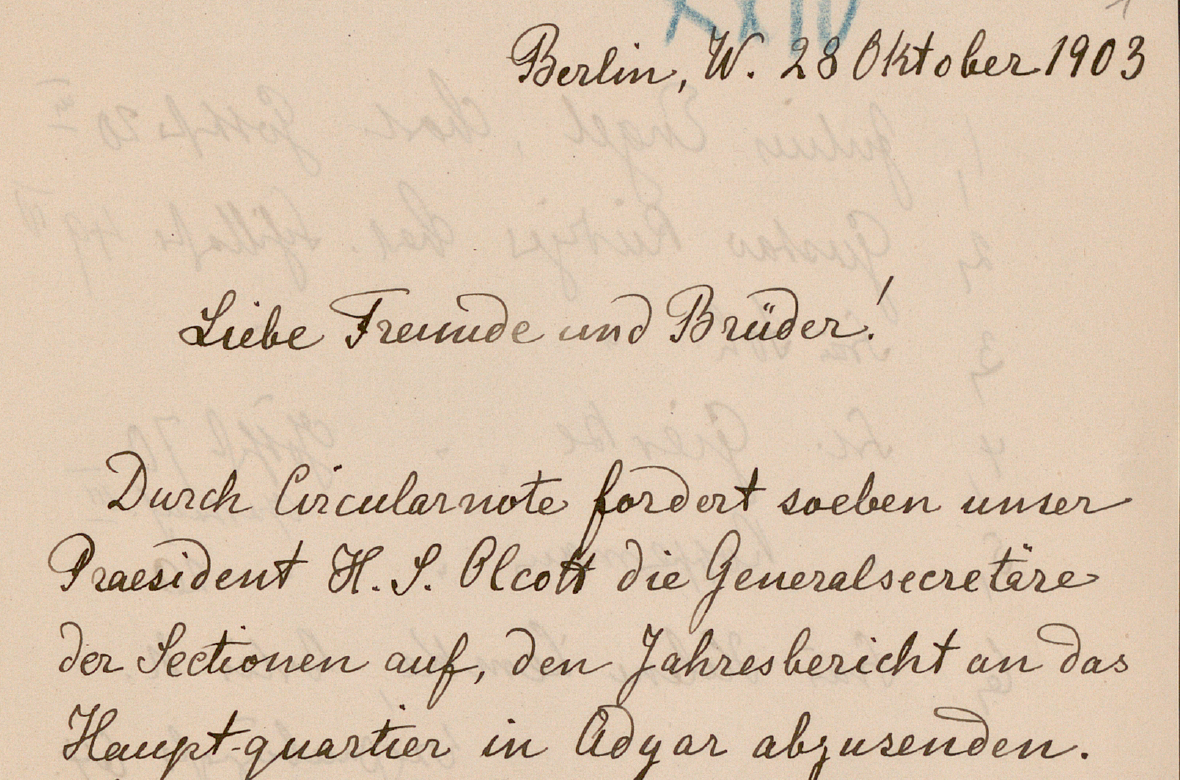 Berlin, W. 28 Oktober 1903
Liebe Freunde und Brüder!
Durch Circularnote fordert soeben unser
Praesident H. S. Olcott die Generalsecretäre
der Sectionen auf, den Jahresbericht an das
Haupt-quartier in Adyar abzusenden.